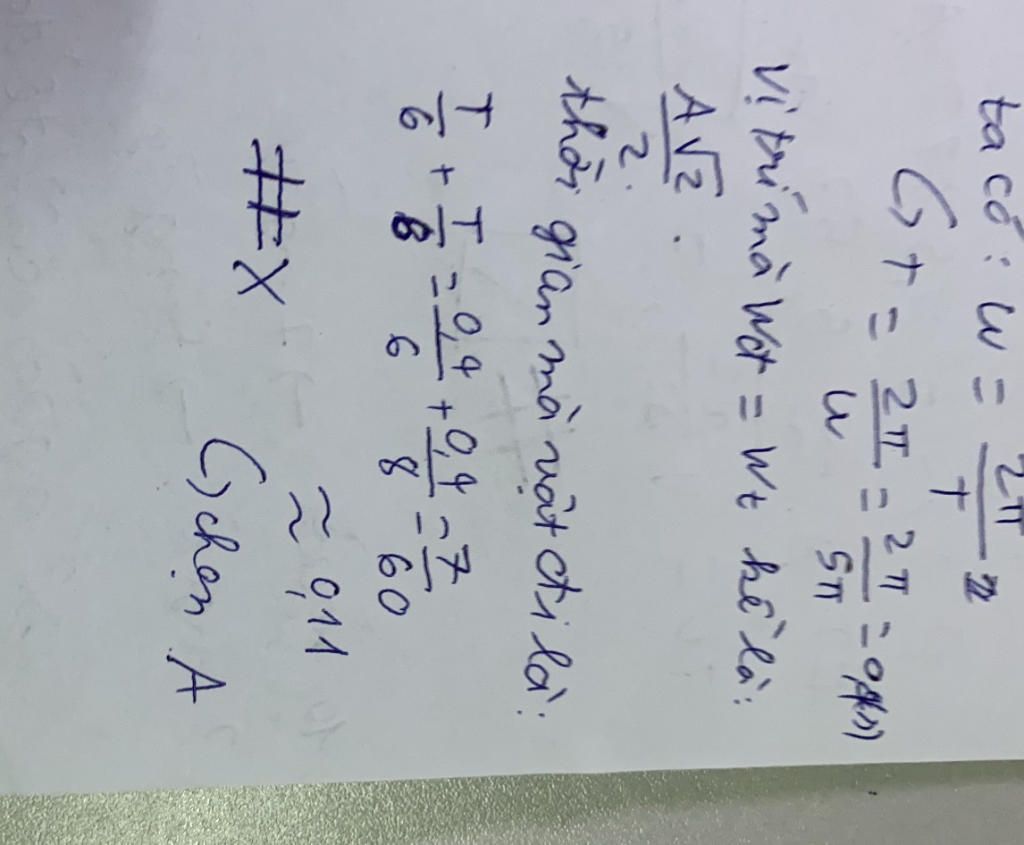 ta có: ω = 2π/T
↳ T = 2π/ω = 2π/5π = 0,4(s)
Vị trí mà Wđ = Wt hế là:
A√2/2.
thời gian mà vật đi là:
T/6 + T/8 = 0,4/6 + 0,4/8 = 7/60
≈ 0,11
#X
↳ chọn A